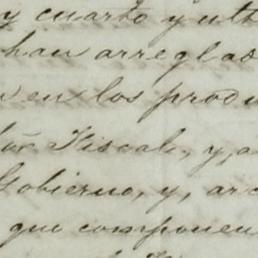 y cuarto y ult
han arregla
en los produ
Fiscal, y, a
Gobierno, y, ar
que componen